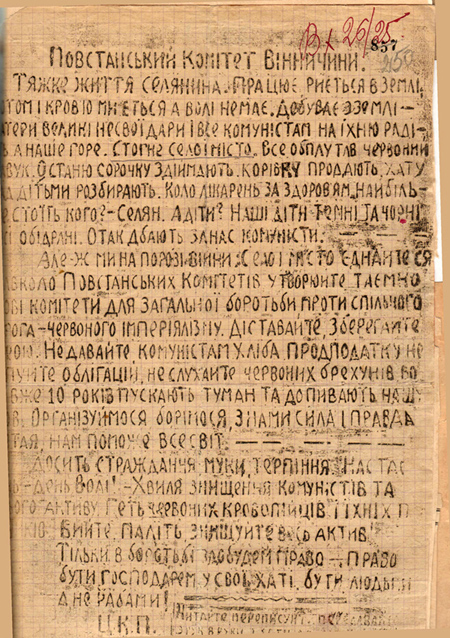 Вх 26/25
857
250
Повстанський Комітет Вінничини.
Тяжке життя селянина. Працює риється в землі
том і кровю миється а волі немає. Добуває з землі —
тери великі не свої дари і все комуністам на їхню раді-
а наше горе. Стогне село і місто. Все обплутав червоний
вук. Останю сорочку здіймають. Корівку продають, хату
з дітьми розбирають. Коло лікарень за здоровям найбіль-
стоїть кого? – Селян. А діти? Наші діти темні та чорні
обідрані. Отак дбають за нас комуністи.
Але-ж ми на порозі війни. Село і місто єднайтеся
коло Повстанських Комітетів утворюйте таємно
ві комітети для загальної боротьби проти спільного
рога – червоного імперіялізму. Діставайте зберегайте
рою. Не давайте комуністам хліба продподатку не
пуйте облігацій, не слухайте червоних брехунів бо
вже 10 років пускають туман та допивають нашу
в. Організуймося борімося, з нами сила і правда
тая, нам поможе всесвіт.
Досить страждання муки, терпіння. Настає
– день волі! – Хвиля знищення комуністів та
ого активу. Геть червоних кровопійців і їхніх п
кю. Бийте, паліть, знищуйте весь актив!
Тільки в боротьбі здобудем право – право
бути господарем у своїй хаті, бути людьми
а не рабами!
Ц.К.П.
Читайте переписуйте, передавайте